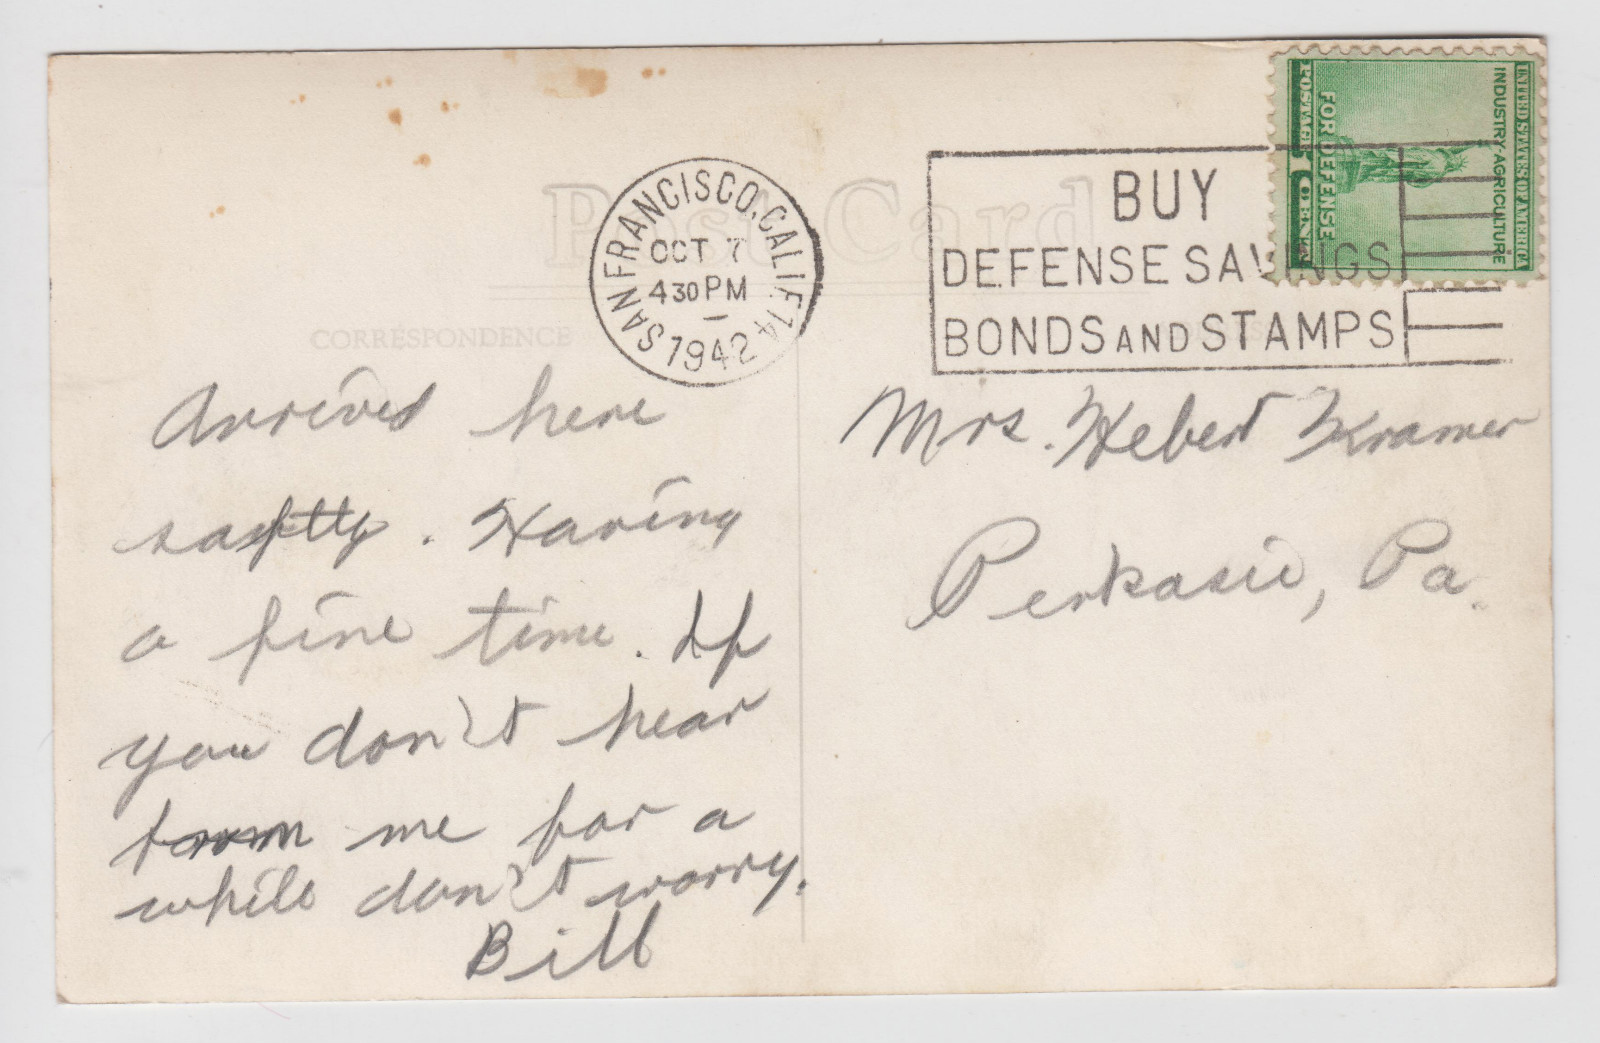 Post Card
SAN FRANCISCO, CALIF. 14
OCT 7
4 30 PM
1942
BUY
DEFENSE SAVINGS
BONDS AND STAMPS
UNITED STATES OF AMERICA
INDUSTRY-AGRICULTURE
FOR DEFENSE
POSTAGE 1 CENT
CORRESPONDENCE
Arrived here
saftly. Having
a fine time. If
you don't hear
from me for a
while don't worry.
Bill
Mrs. Hebert Kramer
Perkasie, Pa.